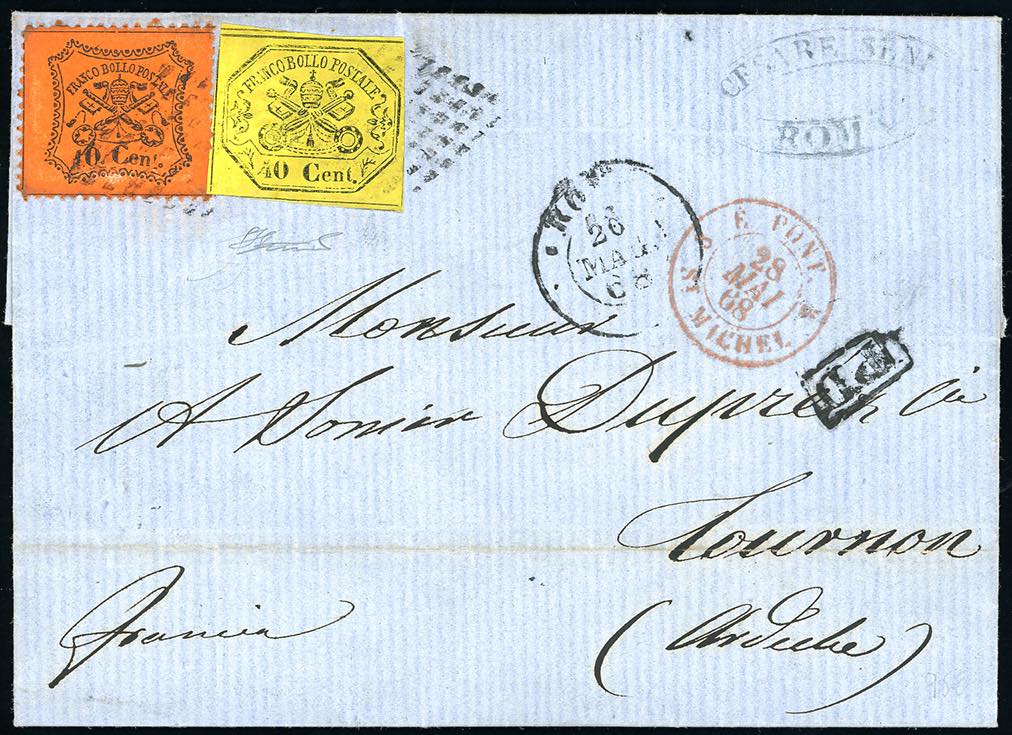 FRANCO BOLLO POSTALE
10 Cent.
FRANCO BOLLO POSTALE
40 Cent.
CESARE
ROM
ROMA
26
MAG.
68
E. PONT.
28
MAI
68
ST MICHEL
PD
Monsieur
A Vonier Dupré & Cie
Tournon
Francia
(Ardèche)